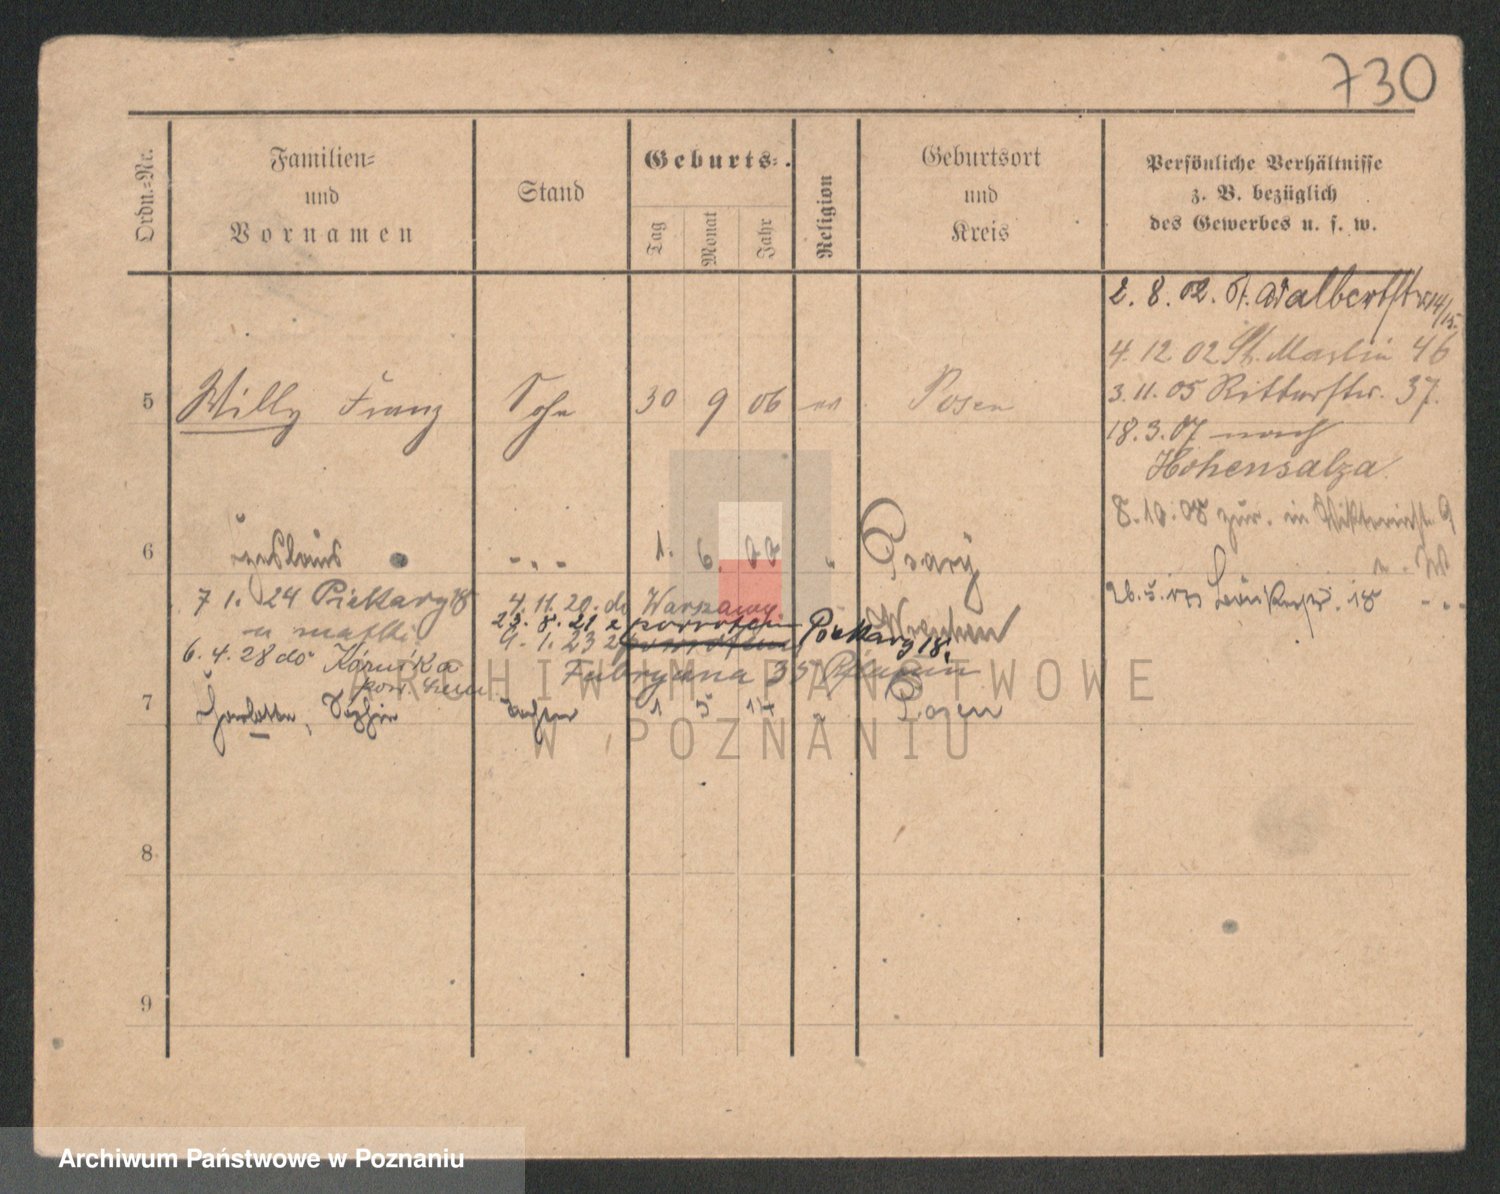 730
Ordn.=Nr.
Familien=
und
Vornamen
Stand
Geburts=
Tag
Monat
Jahr
Religion
Geburtsort
und
Kreis
Persönliche Verhältnisse
z. B. bezüglich
des Gewerbes u. s. w.
2. 8. 02. St. Adalbertstr 14/15.
4. 12 02 St. Martin 46
3. 11. 05 Ritterstr. 37.
5 Willy Franz Sohn 30 9 06 Posen
18. 3. 07 nach
Hohensalza
8. 10. 08 zur. in 9
6 Czeslaus - „ - 1. 6. Psary
Wreschen
26. 5. 18
7 1. 24 Piekary 18
u matki
4. 11. 20. do Warszawy
23. 8. 21 z powrotem Piekary 18.
9. 1. 23 z
Fabryczna 35
6. 4. 28 do Kórnika
pow.
7 Charlotte, Sophie Tochter 1 5 14 „ Posen
8
9
ARCHIWUM PAŃSTWOWE
W POZNANIU
Archiwum Państwowe w Poznaniu